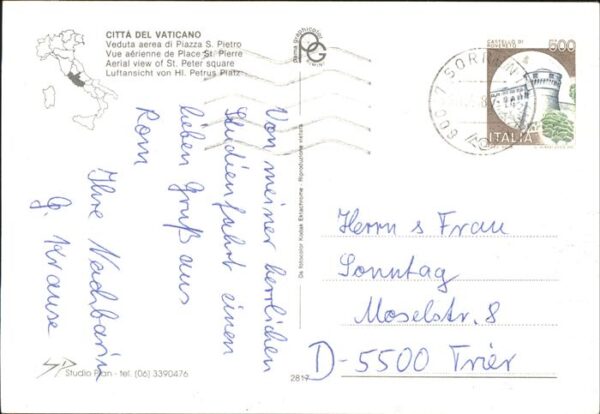 CITTÀ DEL VATICANO
Veduta aerea di Piazza S. Pietro
Vue aérienne de Place St. Pierre
Aerial view of St. Peter square
Luftansicht von Hl. Petrus Platz
Von meiner herrlichen
Studienfahrt einen
lieben Gruß aus
Rom
Ihre Nachbarin
G. Krause
Studio Plan - tel. (06) 3390476
2817
De fotocolor Kodak Ektachrome - Riproduzione vietata
CASTELLO DI
ROVERETO
500
ITALIA
Herrn s Frau
Sonntag
Moselstr. 8
D-5500 Trier